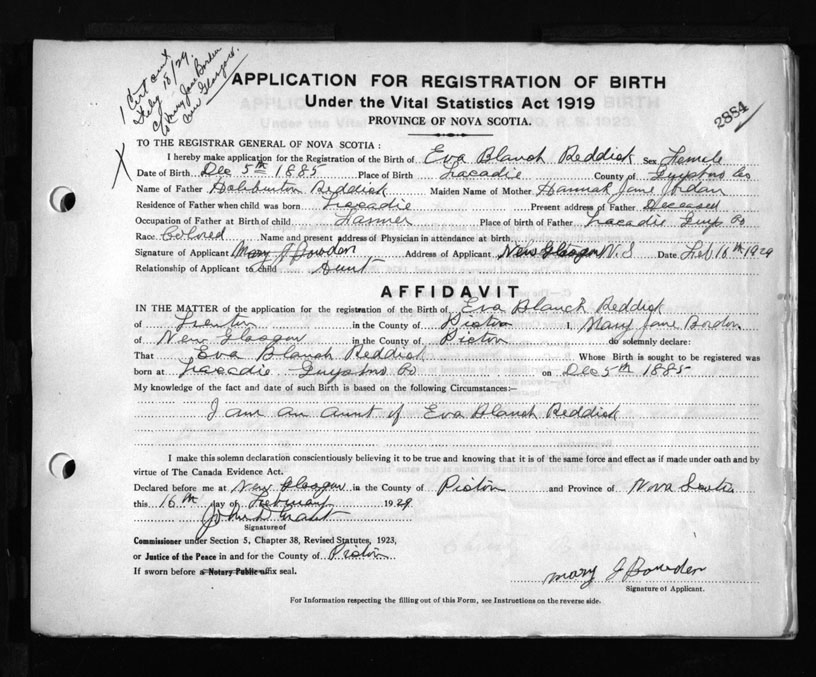 1 Cert out
Feby 18/29.
Mary Jane Borden
New Glasgow.
APPLICATION FOR REGISTRATION OF BIRTH
Under the Vital Statistics Act 1919
PROVINCE OF NOVA SCOTIA.
2884
TO THE REGISTRAR GENERAL OF NOVA SCOTIA:
X I hereby make application for the Registration of the Birth of Eva Blanch Reddick Sex Female
Date of Birth Dec 5th 1885 Place of Birth Tracadie County of Guysboro
Name of Father Haliburton Reddick Maiden Name of Mother Hannah Jane Jordan
Residence of Father when child was born Tracadie Present address of Father Deceased
Occupation of Father at Birth of child Farmer Place of birth of Father Tracadie Guys Co
Race Colored Name and present address of Physician in attendance at birth
Signature of Applicant Mary J Bowden Address of Applicant New Glasgow N.S Date Feb 16th 1929
Relationship of Applicant to Child Aunt
AFFIDAVIT
IN THE MATTER of the application for the registration of the Birth of Eva Blanch Reddick
of Trenton in the County of Pictou I, Mary Jane Bordon
of New Glasgow in the County of Pictou do solemnly declare:
That Eva Blanch Reddick Whose Birth is sought to be registered was
born at Tracadie Guysboro Co on Dec 5th 1885
My knowledge of the fact and date of such Birth is based on the following Circumstances:—
I am an aunt of Eva Blanch Reddick
I make this solemn declaration conscientiously believing it to be true and knowing that it is of the same force and effect as if made under oath and by
virtue of The Canada Evidence Act.
Declared before me at New Glasgow in the County of Pictou and Province of Nova Scotia
this 16th day of February 1929
John D Grant
Signature of
Commissioner under Section 5, Chapter 38, Revised Statutes, 1923,
or Justice of the Peace in and for the County of Pictou
If sworn before a Notary Public affix seal.
Mary J Bowden
Signature of Applicant.
For Information respecting the filling out of this Form, see Instructions on the reverse side.